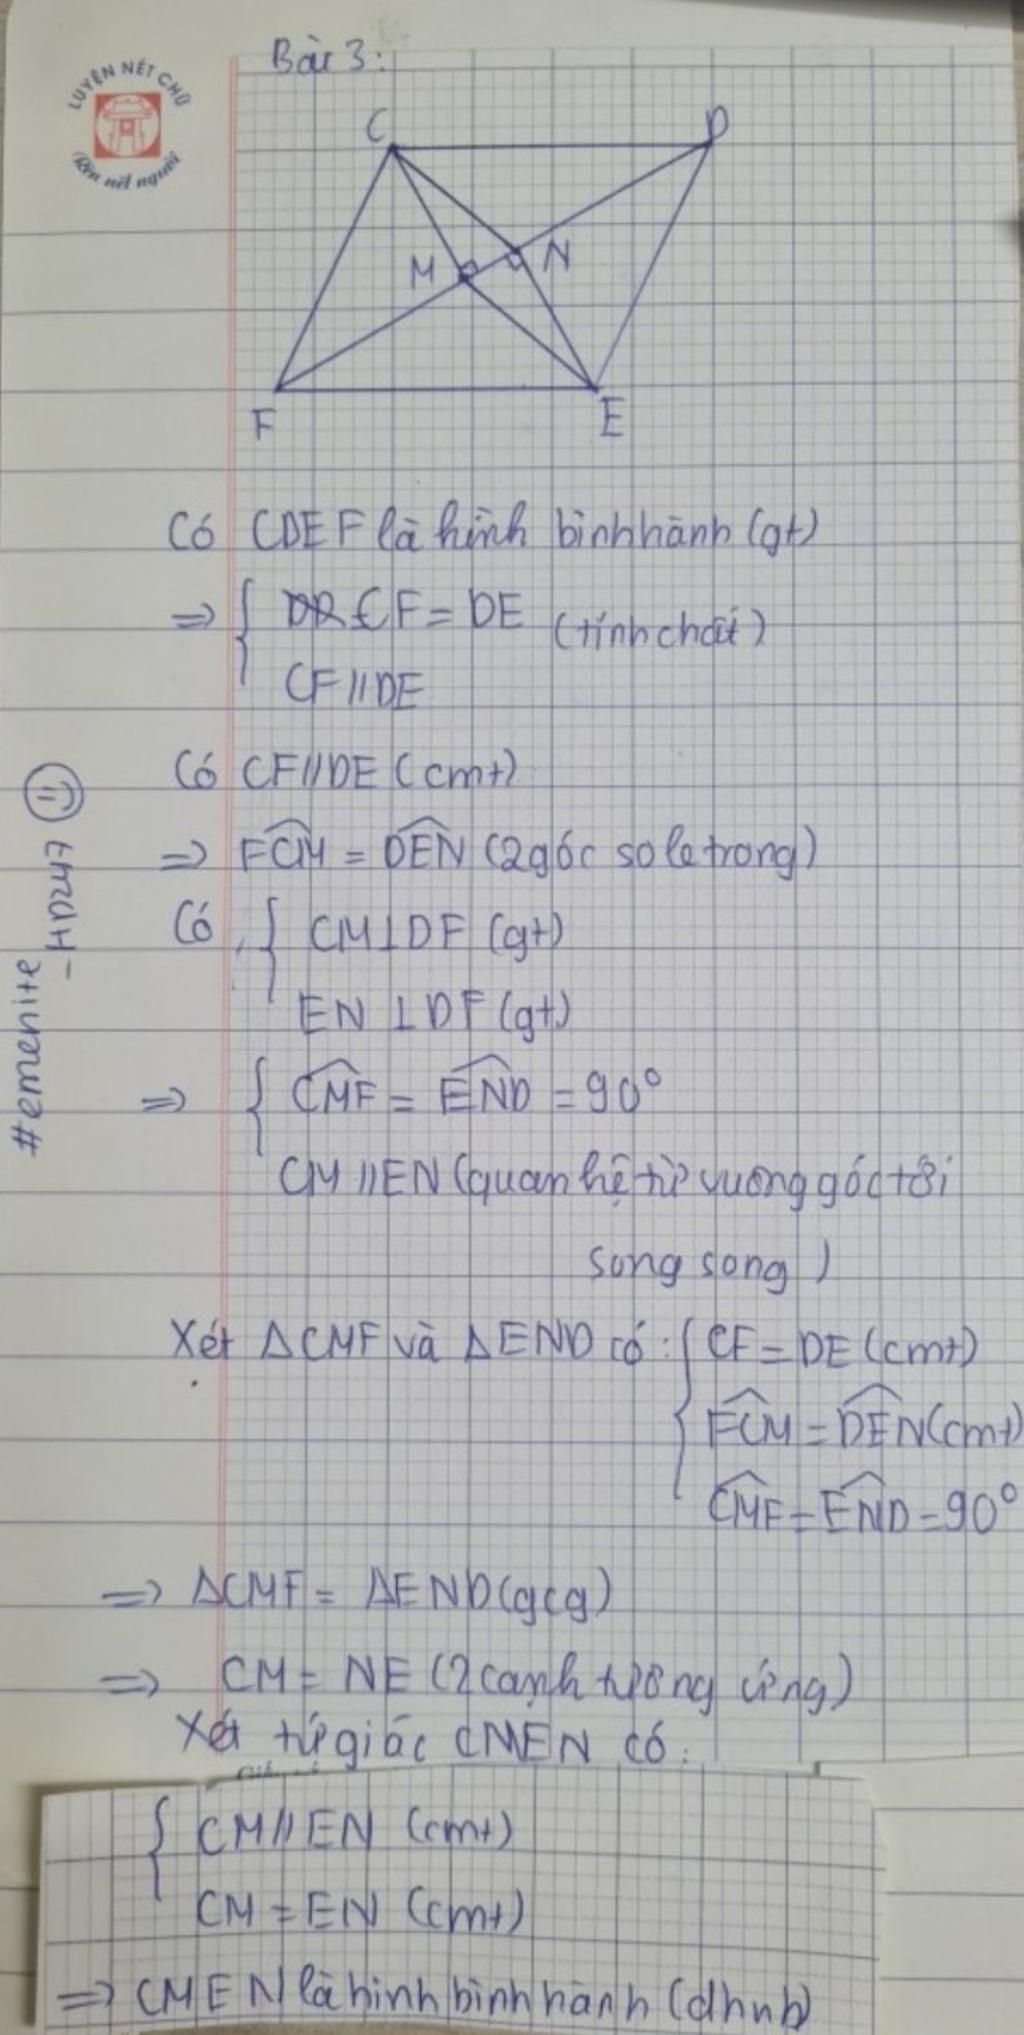 LUYỆN NÉT CHỮ
Rèn nét người
Bài 3:
C
D
M
N
F
E
Có CDEF là hình bình hành (gt)
=> { CF = DE (tính chất)
CF // DE
Có CF // DE (cmt)
=> FCM = DEN (2 góc so le trong)
Có { CM ⊥ DF (gt)
EN ⊥ DF (gt)
=> { CMF = END = 90°
CM // EN (quan hệ từ vuông góc tới
song song)
Xét ΔCMF và ΔEND có: { CF = DE (cmt)
FCM = DEN (cmt)
CMF = END = 90°
=> ΔCMF = ΔEND (gcg)
=> CM = NE (2 cạnh tương ứng)
Xét tứ giác CMEN có:
{ CM // EN (cmt)
CM = EN (cmt)
=> CMEN là hình bình hành (dhnb)
#emenite
-HD247 =)